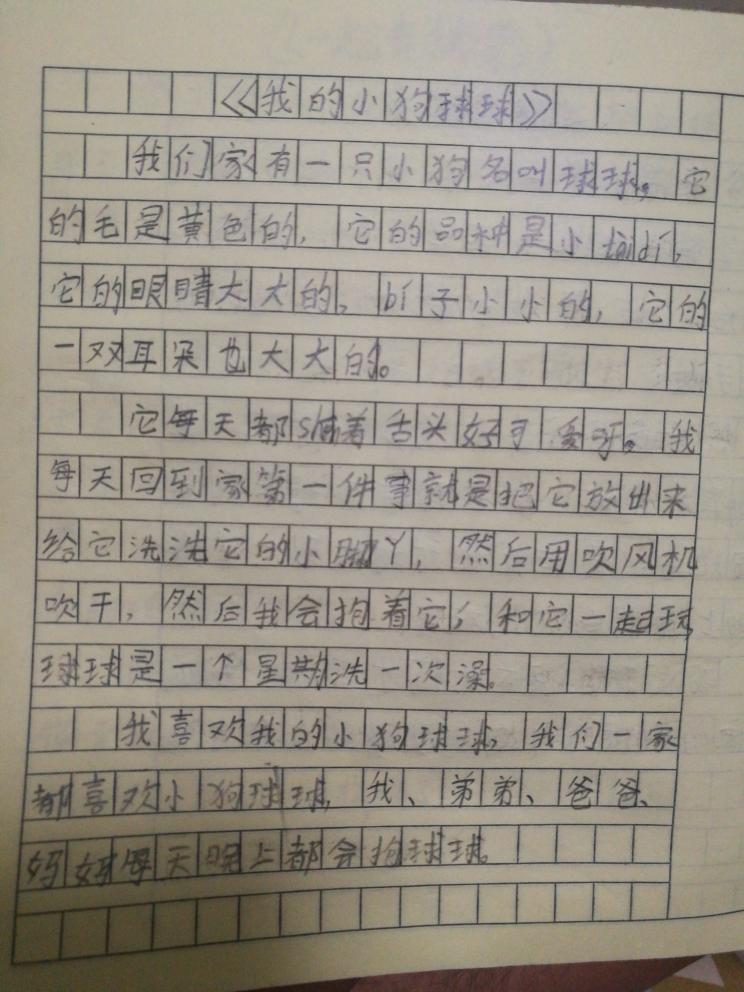 《我的小狗球球》
我们家有一只小狗名叫球球。它
的毛是黄色的,它的品种是小tàidí,
它的眼睛大大的,bí子小小的,它的
一双耳朵也大大的。
它每天都shēn着舌头好可爱呀。我
每天回到家第一件事就是把它放出来
给它洗洗它的小脚丫,然后用吹风机
吹干,然后我会抱着它,和它一起玩,
球球是一个星期洗一次澡。
我喜欢我的小狗球球,我们一家
都喜欢小狗球球,我、弟弟、爸爸、
妈妈每天晚上都会抱球球。